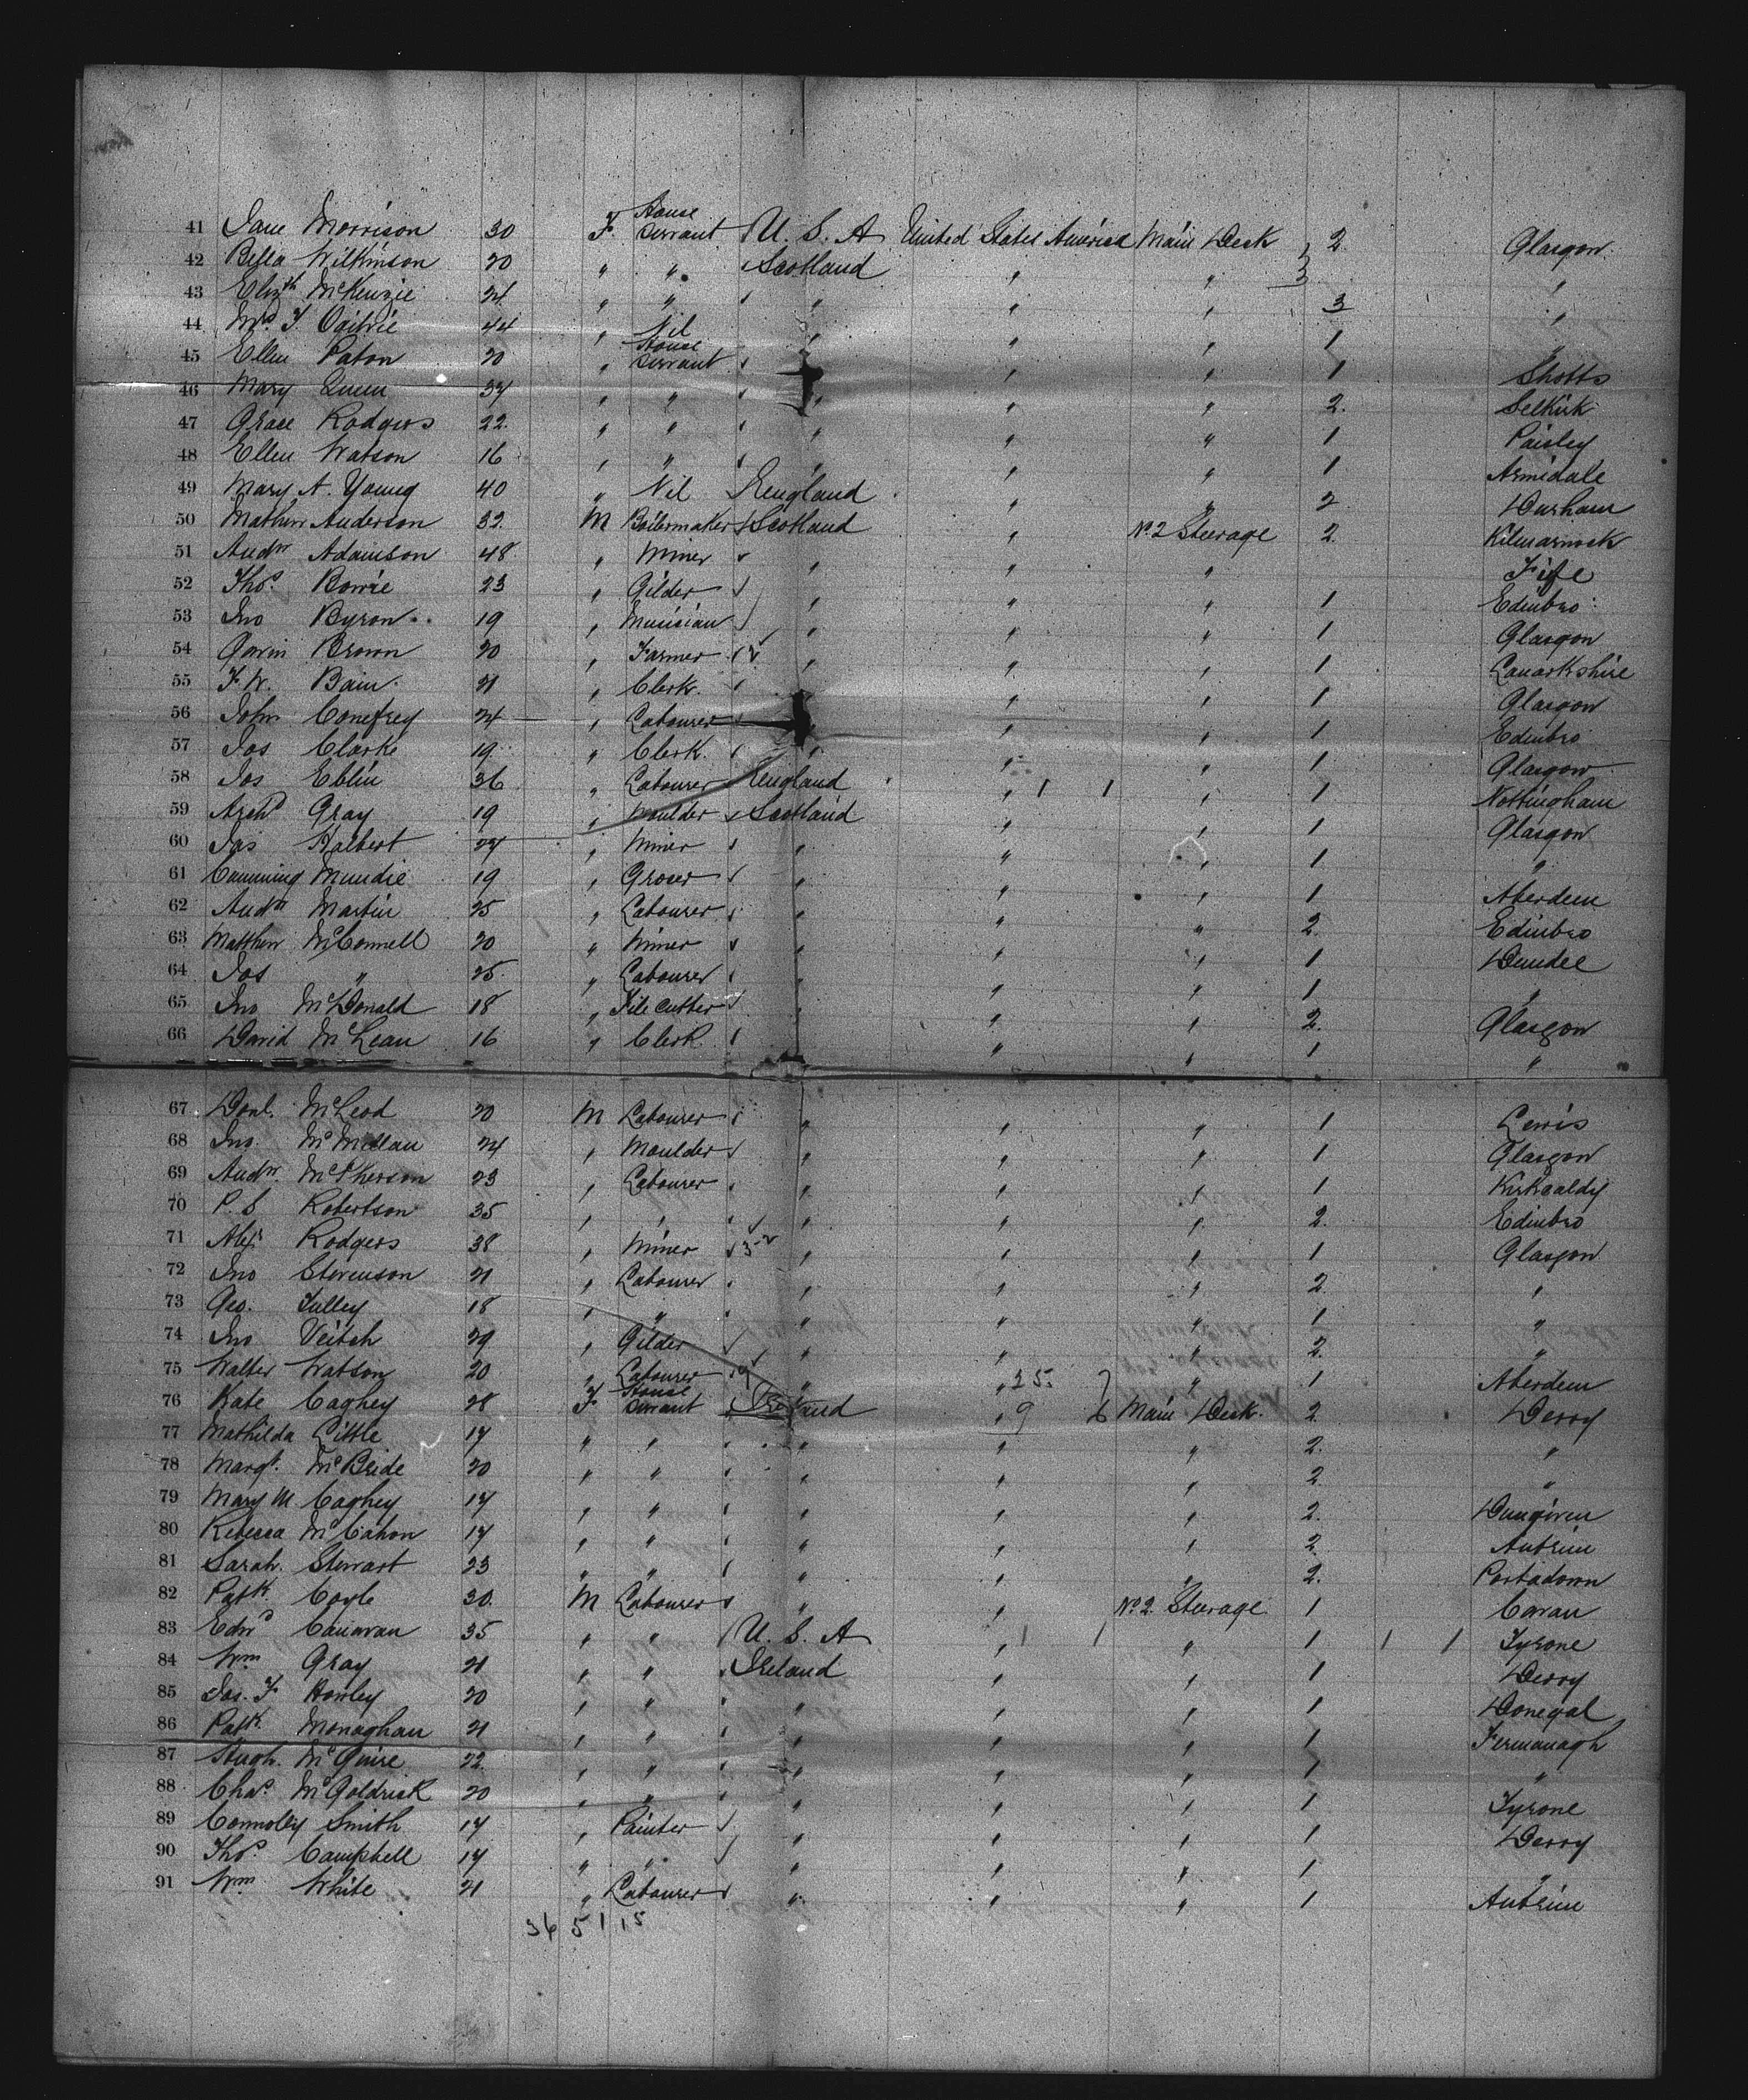 41 Jane Morrison 30 F House Servant U. S. A United States America Main Deck 2 Glasgow
42 Bella Wilkinson 20 " " Scotland " " 3 "
43 Elizth McKenzie 24 " " " " " 3 "
44 Mrs T. Ogilvie 44 " Nil " " " 1 "
45 Ellen Paton 20 " House Servant " " " 1 Shotts
46 Mary Queen 37 " " " " " 2 Selkirk
47 Grace Rodgers 22 " " " " " 1 Paisley
48 Ellen Watson 16 " " " " " 1 Armidale
49 Mary A. Young 40 " Nil England " " 2 Durham
50 Mathew Anderson 32 M Boilermaker Scotland " No. 2 Steerage 2 Kilmarnock
51 Andw Adamson 48 " Miner " " " Fife
52 Thos. Bowie 23 " Gilder " " " 1 Edinbro
53 Jno Byron 19 " Musician " " " 1 Glasgow
54 Gavin Brown 20 " Farmer " " " 1 Lanarkshire
55 F. W. Bain 21 " Clerk " " " 1 Glasgow
56 John Conefrey 24 " Labourer " " " 1 Edinbro
57 Jos Clarke 19 " Clerk " " " 1 Glasgow
58 Jos Eblin 36 " Labourer England " 1 1 " 1 Nottingham
59 Archd Gray 19 " Moulder Scotland " " 1 Glasgow
60 Jas Halbert 27 " Miner " " " 1 "
61 Cumming Mundie 19 " Grocer " " " 1 Aberdeen
62 Andw Martin 25 " Labourer " " " 2 Edinbro
63 Matthew McConnell 20 " Miner " " " 1 Dundee
64 Jos " 25 " Labourer " " " 1 "
65 Jno McDonald 18 " File Cutter " " " 2 Glasgow
66 David McLean 16 " Clerk " " " 1 "
67 Donl. McLeod 20 M Labourer " " " 1 Lewis
68 Jno. McMillan 24 " Moulder " " " 1 Glasgow
69 Andw. McPherson 23 " Labourer " " " 1 Kirkcaldy
70 P. S Robertson 35 " " " " " 2 Edinbro
71 Alexr Rodgers 38 " Miner 3-2 " " " 1 Glasgow
72 Jno Stevenson 21 " Labourer " " " 2 "
73 Geo. Tulley 18 " " " " " 1 "
74 Jno Veitch 29 " Gilder " " " 2 "
75 Walter Watson 20 " Labourer " " 25 " 1 Aberdeen
76 Kate Caghey 28 F House Servant Ireland " 9 6 Main Deck 2 Derry
77 Mathilda Little 17 " " " " " 2 "
78 Margt. McBride 20 " " " " " 2 "
79 Mary M. Caghey 17 " " " " " 2 Dungiven
80 Rebecca McCahon 17 " " " " " 2 Antrim
81 Sarah Stewart 23 " " " " " 2 Portadown
82 Patk. Coyle 30 M Labourer " " No. 2 Steerage 1 Cavan
83 Edwd Canavan 35 " " U. S. A " 1 1 " 1 1 1 Tyrone
84 Wm Gray 21 " " Ireland " " 1 Derry
85 Jas. F Howley 20 " " " " " 1 Donegal
86 Patk. Monaghan 21 " " " " " 1 Fermanagh
87 Hugh McGuire 22 " " " " " 1 "
88 Chas. McGoldrick 20 " " " " " 1 Tyrone
89 Connolly Smith 17 " Painter " " " 1 Derry
90 Thos. Campbell 17 " " " " " 1 "
91 Wm White 21 " Labourer " " " 1 Antrim
36 5 1 15